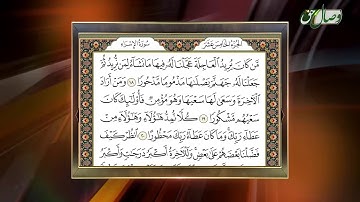 وصال حق
الجزء الخامس عشر
سورة الإسراء
مَّن كَانَ يُرِيدُ ٱلْعَاجِلَةَ عَجَّلْنَا لَهُۥ فِيهَا مَا نَشَآءُ لِمَن نُّرِيدُ ثُمَّ
جَعَلْنَا لَهُۥ جَهَنَّمَ يَصْلَىٰهَا مَذْمُومًا مَّدْحُورًا ١٨ وَمَنْ أَرَادَ
ٱلْءَاخِرَةَ وَسَعَىٰ لَهَا سَعْيَهَا وَهُوَ مُؤْمِنٌ فَأُو۟لَٰٓئِكَ كَانَ
سَعْيُهُم مَّشْكُورًا ١٩ كُلًّا نُّمِدُّ هَٰٓؤُلَآءِ وَهَٰٓؤُلَآءِ مِنْ
عَطَآءِ رَبِّكَ وَمَا كَانَ عَطَآءُ رَبِّكَ مَحْظُورًا ٢٠ ٱنظُرْ كَيْفَ
فَضَّلْنَا بَعْضَهُمْ عَلَىٰ بَعْضٍ وَلَلْءَاخِرَةُ أَكْبَرُ دَرَجَٰتٍ وَأَكْبَرُ